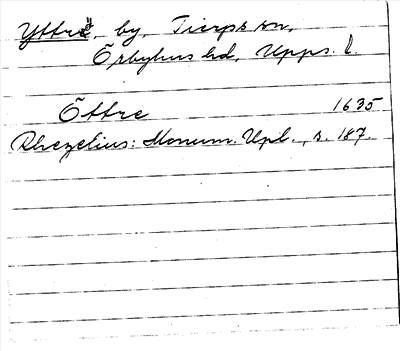 Yttrö, by, Tierps sn,
Örbyhus hd, Upps. l.
Öttre 1635
Rhezelius: Monum. Upl., s. 187.